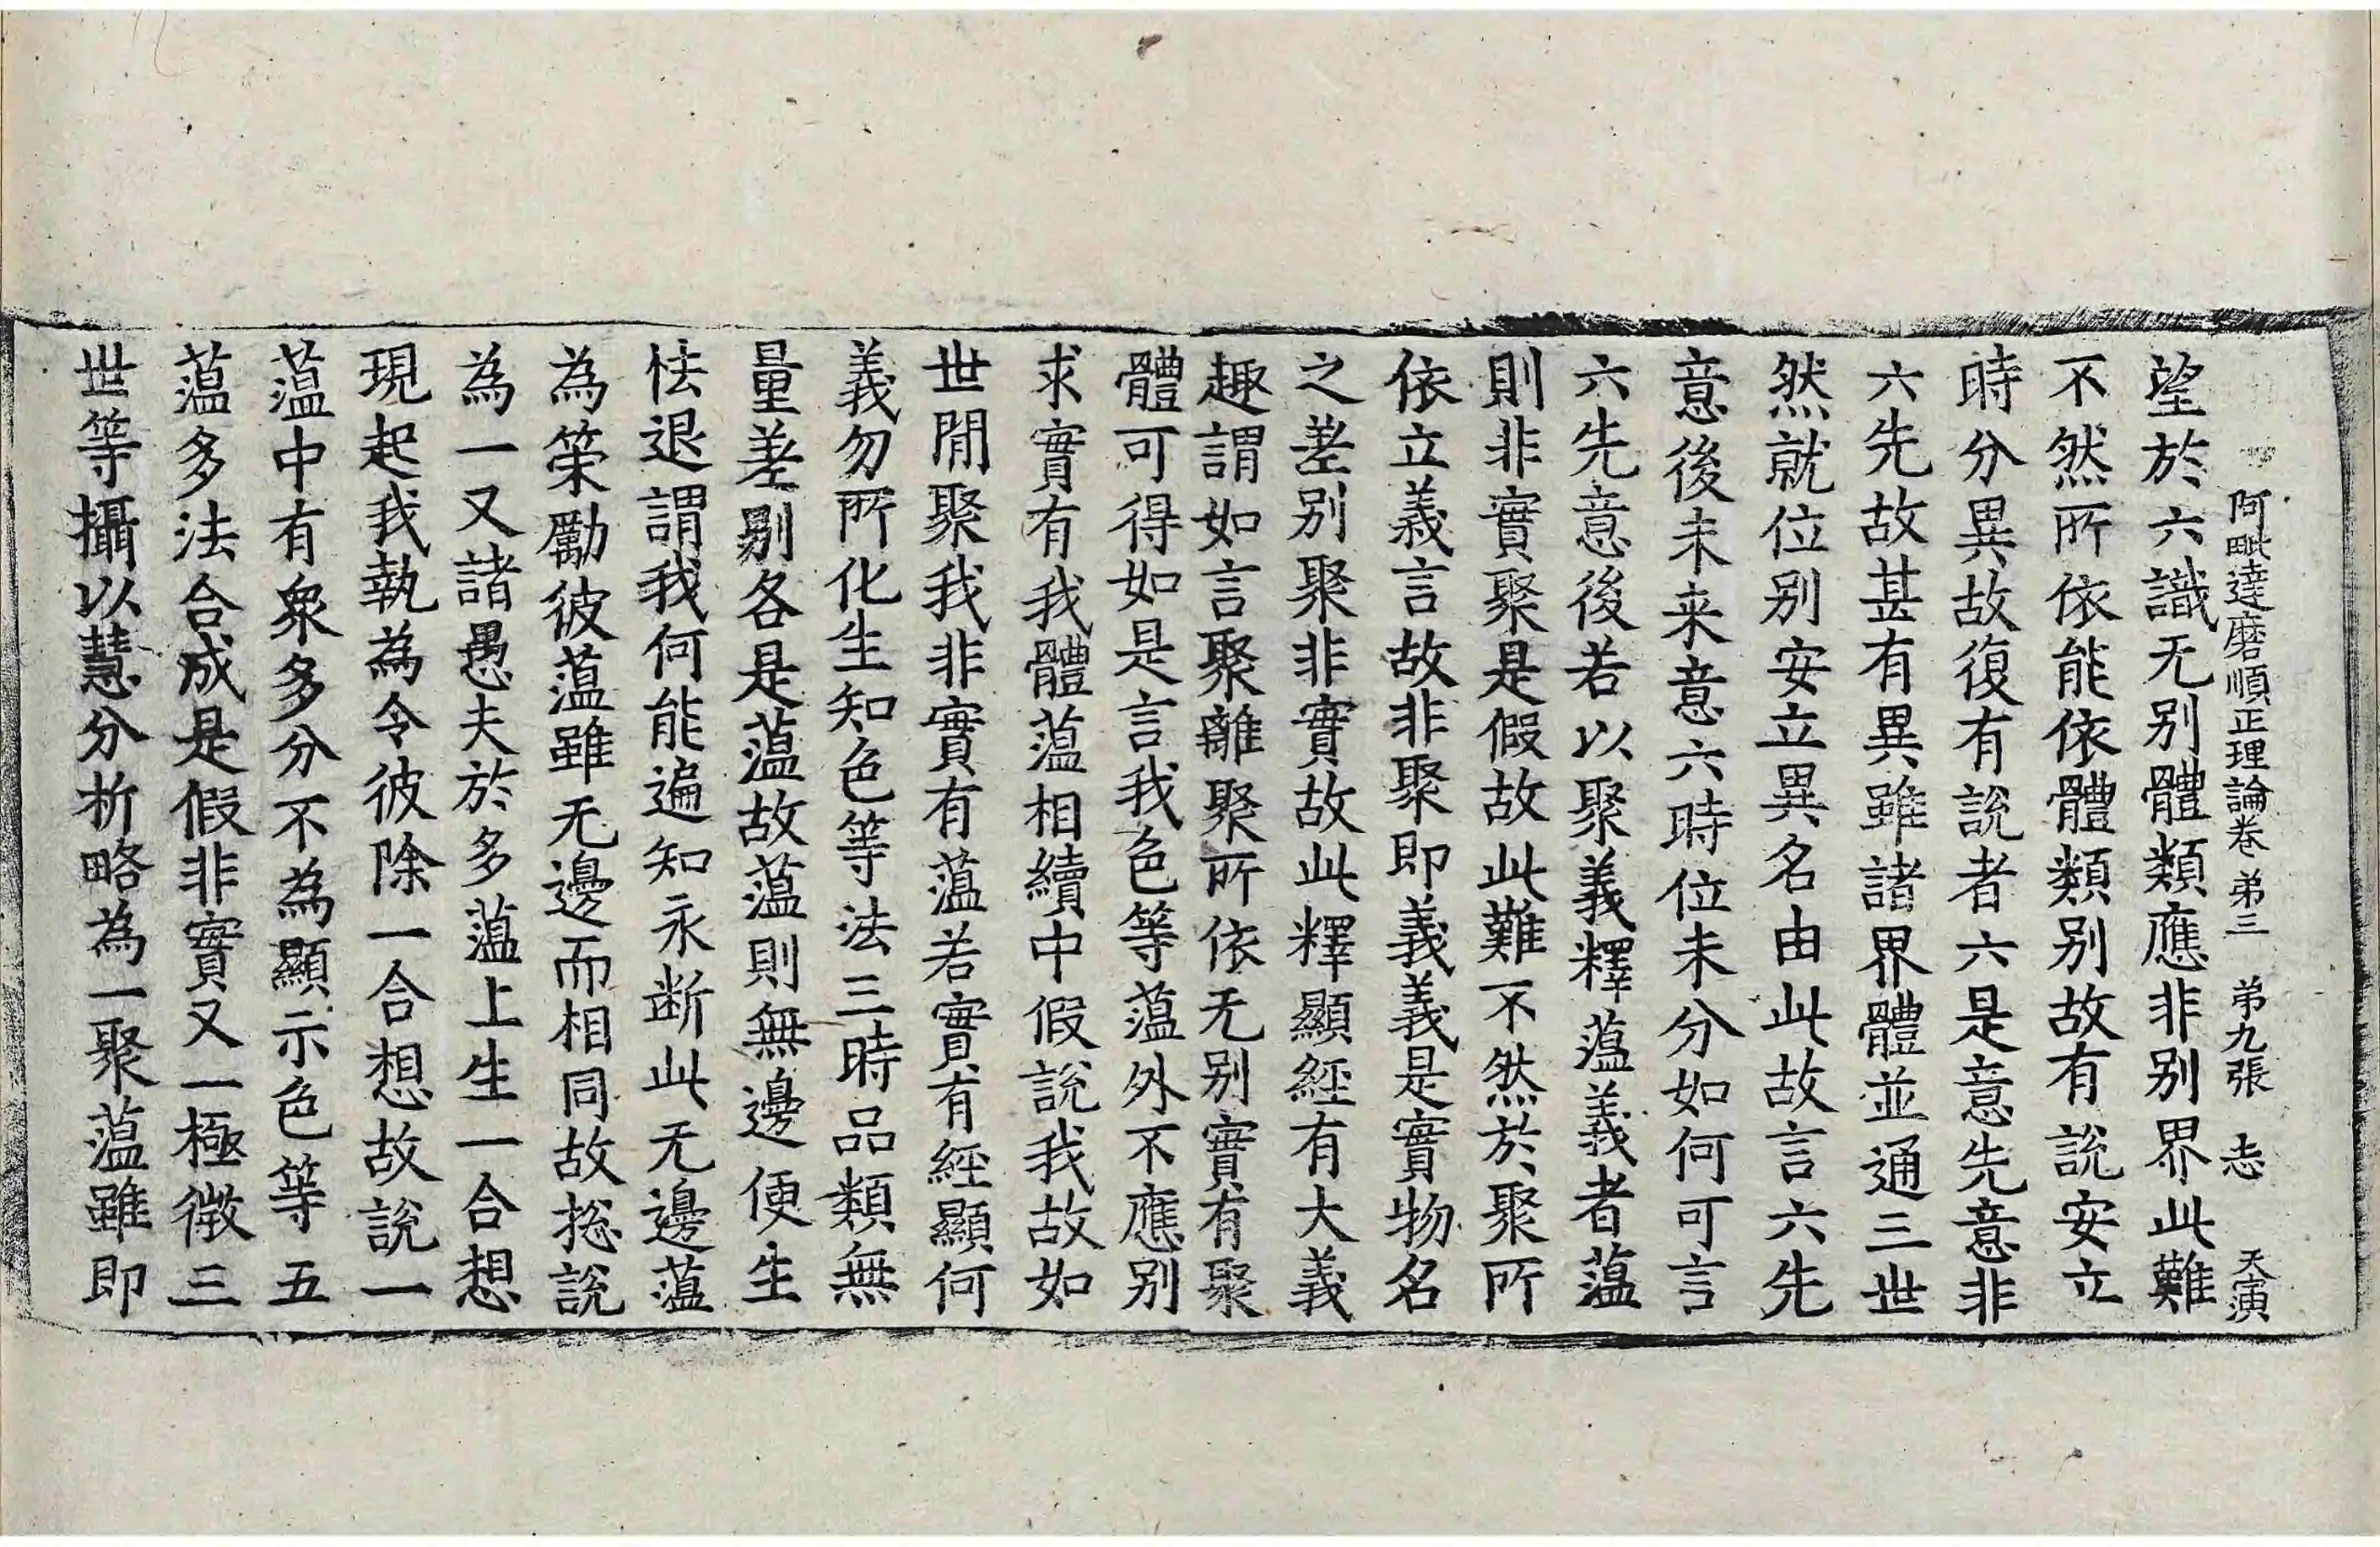 阿毗達磨順正理論卷第三　第九張　志　天演
望於六識无別體類應非別界此難
不然所依能依體類別故有說安立
時分異故復有說者六是意先意非
六先故甚有異雖諸界體並通三世
然就位別安立異名由此故言六先
意後未来意六時位未分如何可言
六先意後若以聚義釋蘊義者蘊
則非實聚是假故此難不然於聚所
依立義言故非聚即義義是實物名
之差別聚非實故此釋顯經有大義
趣謂如言聚離聚所依无別實有聚
體可得如是言我色等蘊外不應別
求實有我體蘊相續中假說我故如
世閒聚我非實有蘊若實有經顯何
義勿所化生知色等法三時品類無
量差別各是蘊故蘊則無邊便生
怯退謂我何能遍知永断此无邊蘊
為策勵彼蘊雖无邊而相同故捴說
為一又諸愚夫於多蘊上生一合想
現起我執為令彼除一合想故說一
蘊中有衆多分不為顯示色等五
蘊多法合成是假非實又一極微三
世等攝以慧分析略為一聚蘊雖即